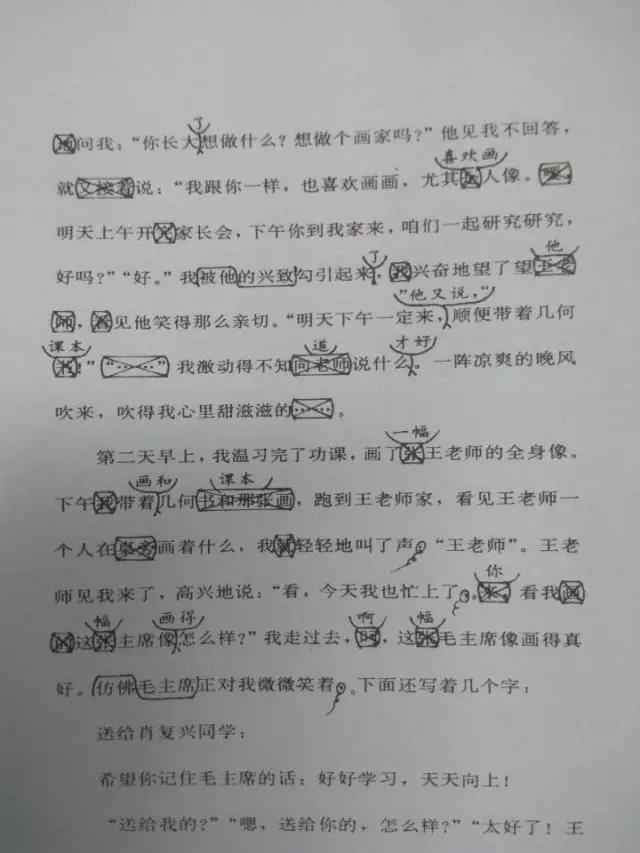 了
问我：“你长大想做什么？想做个画家吗？”他见我不回答，
喜欢画
就又接着说：“我跟你一样，也喜欢画画，尤其人像。
明天上午开完家长会，下午你到我家来，咱们一起研究研究，
了 他
好吗？”“好。”我被他的兴致勾引起来，我兴奋地望了望王老
”他又说，“
师，看见他笑得那么亲切。“明天下午一定来，顺便带着几何
课本 道 才好
书！”“……”我激动得不知向老师说什么。一阵凉爽的晚风
吹来，吹得我心里甜滋滋的……。
一幅
第二天早上，我温习完了功课，画了张王老师的全身像。
画和 课本
下午我带着几何书和那张画，跑到王老师家，看见王老师一
个人在画着什么，我就轻轻地叫了声“王老师”。王老
你
师见我来了，高兴地说：“看，今天我也忙上了。来，看我画
幅 画得 啊 幅
的这张主席像怎么样？”我走过去，呵，这张毛主席像画得真
好。仿佛毛主席正对我微微笑着。下面还写着几个字：
送给肖复兴同学：
希望你记住毛主席的话：好好学习，天天向上！
“送给我的？”“嗯，送给你的，怎么样？”“太好了！王